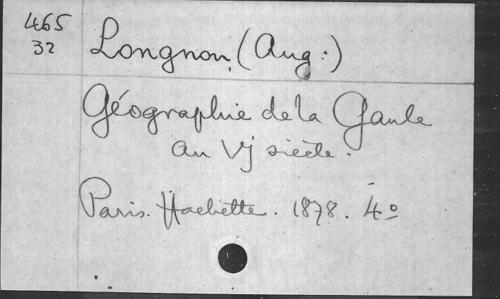 465
32
Longnon (Aug:)
Géographie de la Gaule
au Vj siècle.
Paris. Hachette. 1878. 4º